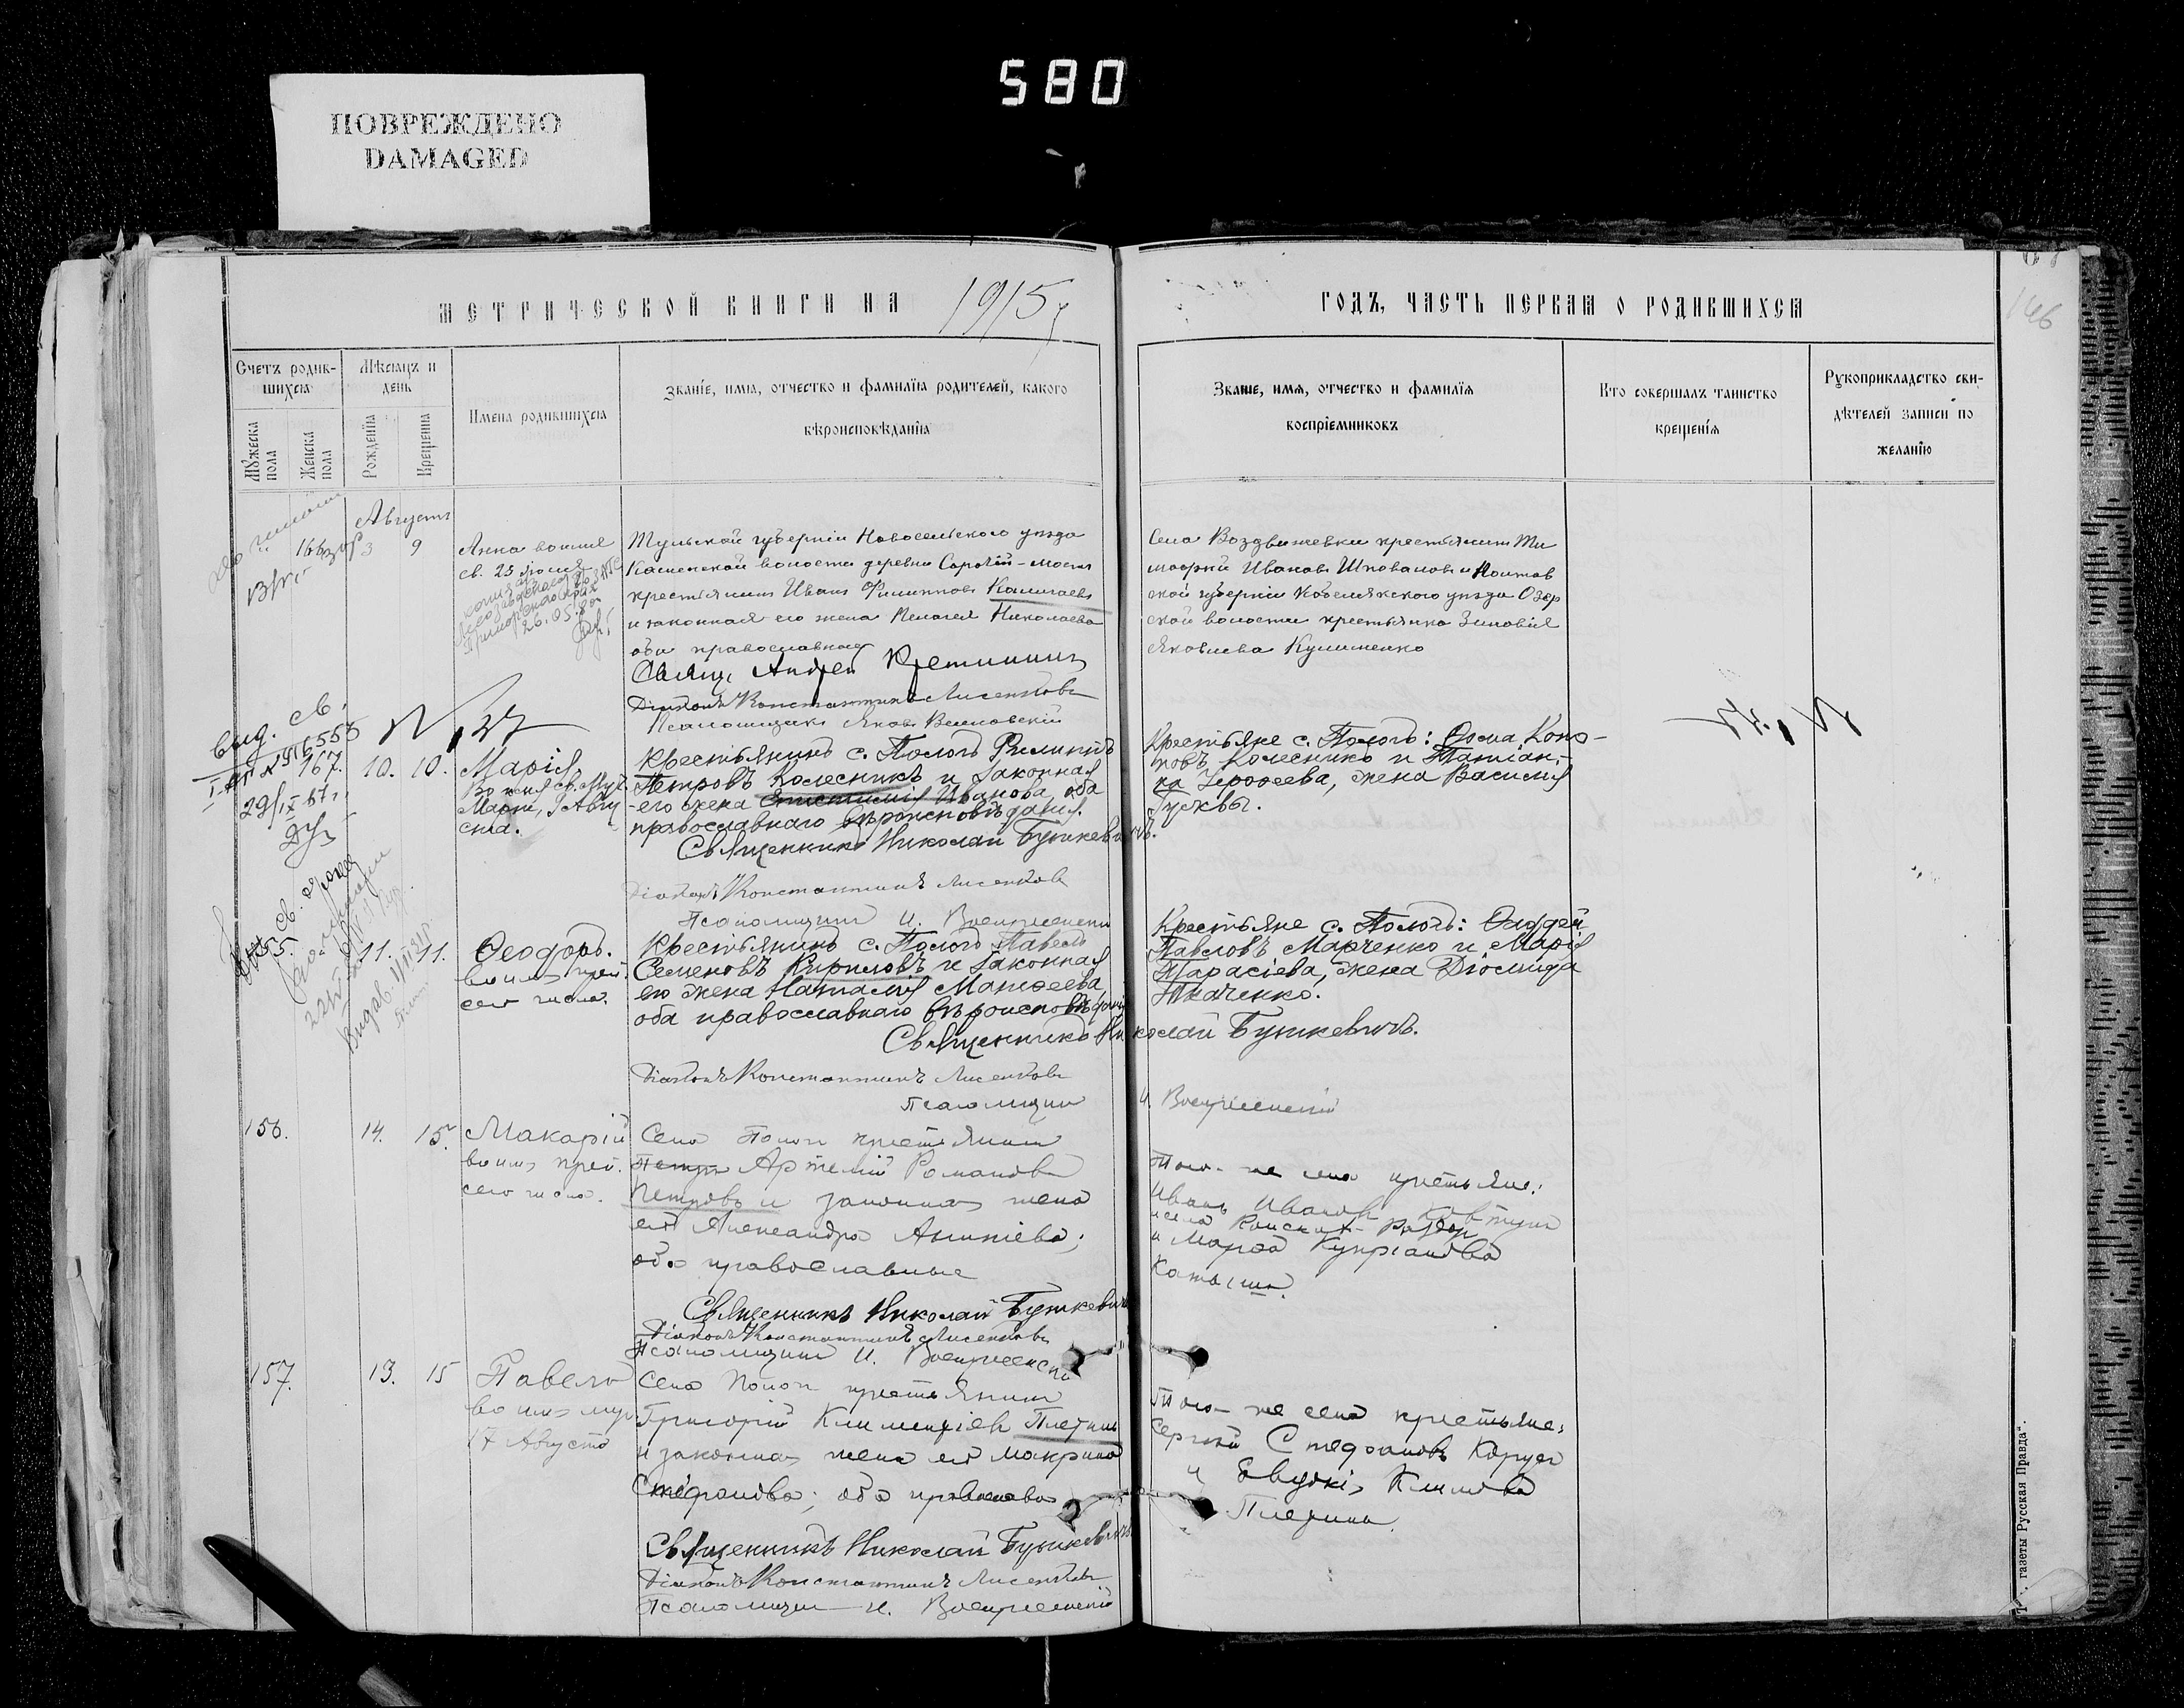 580
ПОВРЕЖДЕНО
DAMAGED
МЕТРИЧЕСКОЙ КНИГИ НА 1915
ГОДЪ, ЧАСТЬ ПЕРВАЯ О РОДИВШИХСЯ
146
Счетъ родив-
шихся
Мѣсяцъ и
день
Мужеска
пола
Женска
пола
Рожденія
Крещенія
Имена родившихся
Званіе, имя, отчество и фамилія родителей, какого
вѣроисповѣданія
Званіе, имя, отчество и фамилія
воспріемниковъ
Кто совершалъ таинство
крещенія
Рукоприкладство сви-
дѣтелей записи по
желанію
Августъ
166
3
9
Анна
св. 25 Іюля
26.05.80
Тульской губерніи Новосельского уѣзда
Каменской волости деревни
крестьянинъ Иванъ Филипповъ
и законная его жена Пелагея Николаева
оба православные
Свящ. Андрей
Діаконъ Константинъ Лисенковъ
Псаломщикъ Яковъ
Села Воздвиженки крестьянинъ Ти
моѳей Ивановъ Шповаловъ и Полтав
ской губерніи Кобелякского уѣзда Озер
ской волости крестьянка Зиновія
Яковлева Кулименко
выд. св.
29/IX 87 г.
167.
10.
10.
Марія
Во имя св. Муч.
Маріи, 9 Авгу
ста.
Крестьянинъ с. Пологъ Филиппъ
Петровъ Колесникъ и законная
его жена Епистимія Иванова, оба
православнаго вѣроисповѣданія.
Священникъ Николай Буткевичъ.
Діаконъ Константинъ Лисенковъ
Псаломщикъ И. Воскресенскій
Крестьяне с. Пологъ: Ѳома Коно-
новъ Колесникъ и Татіан-
на Ерофеева, жена Василія
Гусквы.
155.
11.
11.
Ѳеодоръ.
во имя преп.
сего числа.
Крестьянинъ с. Пологъ Павелъ
Семеновъ Кириловъ и законная
его жена Наталія Матѳеева,
оба православнаго вѣроисповѣданія
Священникъ Николай Буткевичъ.
Діаконъ Константинъ Лисенковъ
Псаломщикъ И. Воскресенскій
Крестьяне с. Пологъ: Ѳаддей
Павловъ Марченко и Марія
Тарасіева, жена Діомида
Ткаченко.
156.
14.
15.
Макарій
во имя преп.
сего числа.
Села Пологъ крестьянинъ
Артемій Романовъ
Петровъ и законная жена
его Александра Ананіева;
оба православные
Священникъ Николай Буткевичъ
Діаконъ Константинъ Лисенковъ
Псаломщикъ И. Воскресенскій
Того-же села крестьяне:
Иванъ Ивановъ Ковтунъ
и села Конскихъ Раздоръ
и Марфа Купріанова
157.
13.
15
Павелъ
во имя муч.
17 Августа
Села Пологъ крестьянинъ
Григорій Климентіевъ
и законная жена его Макрина
Стефанова; оба православн
Священникъ Николай Буткевичъ
Діаконъ Константинъ Лисенковъ
Псаломщикъ И. Воскресенскій
Того-же села крестьяне:
Сергій Стефановъ
и Евдокія Климова
газеты Русская Правда".